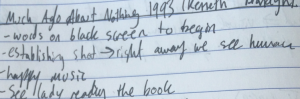 Much Ado About Nothing 1993 (Kenneth Branagh)
- words on black screen to begin
- establishing shot → right away we see humans
- happy music
- see lady reading the book